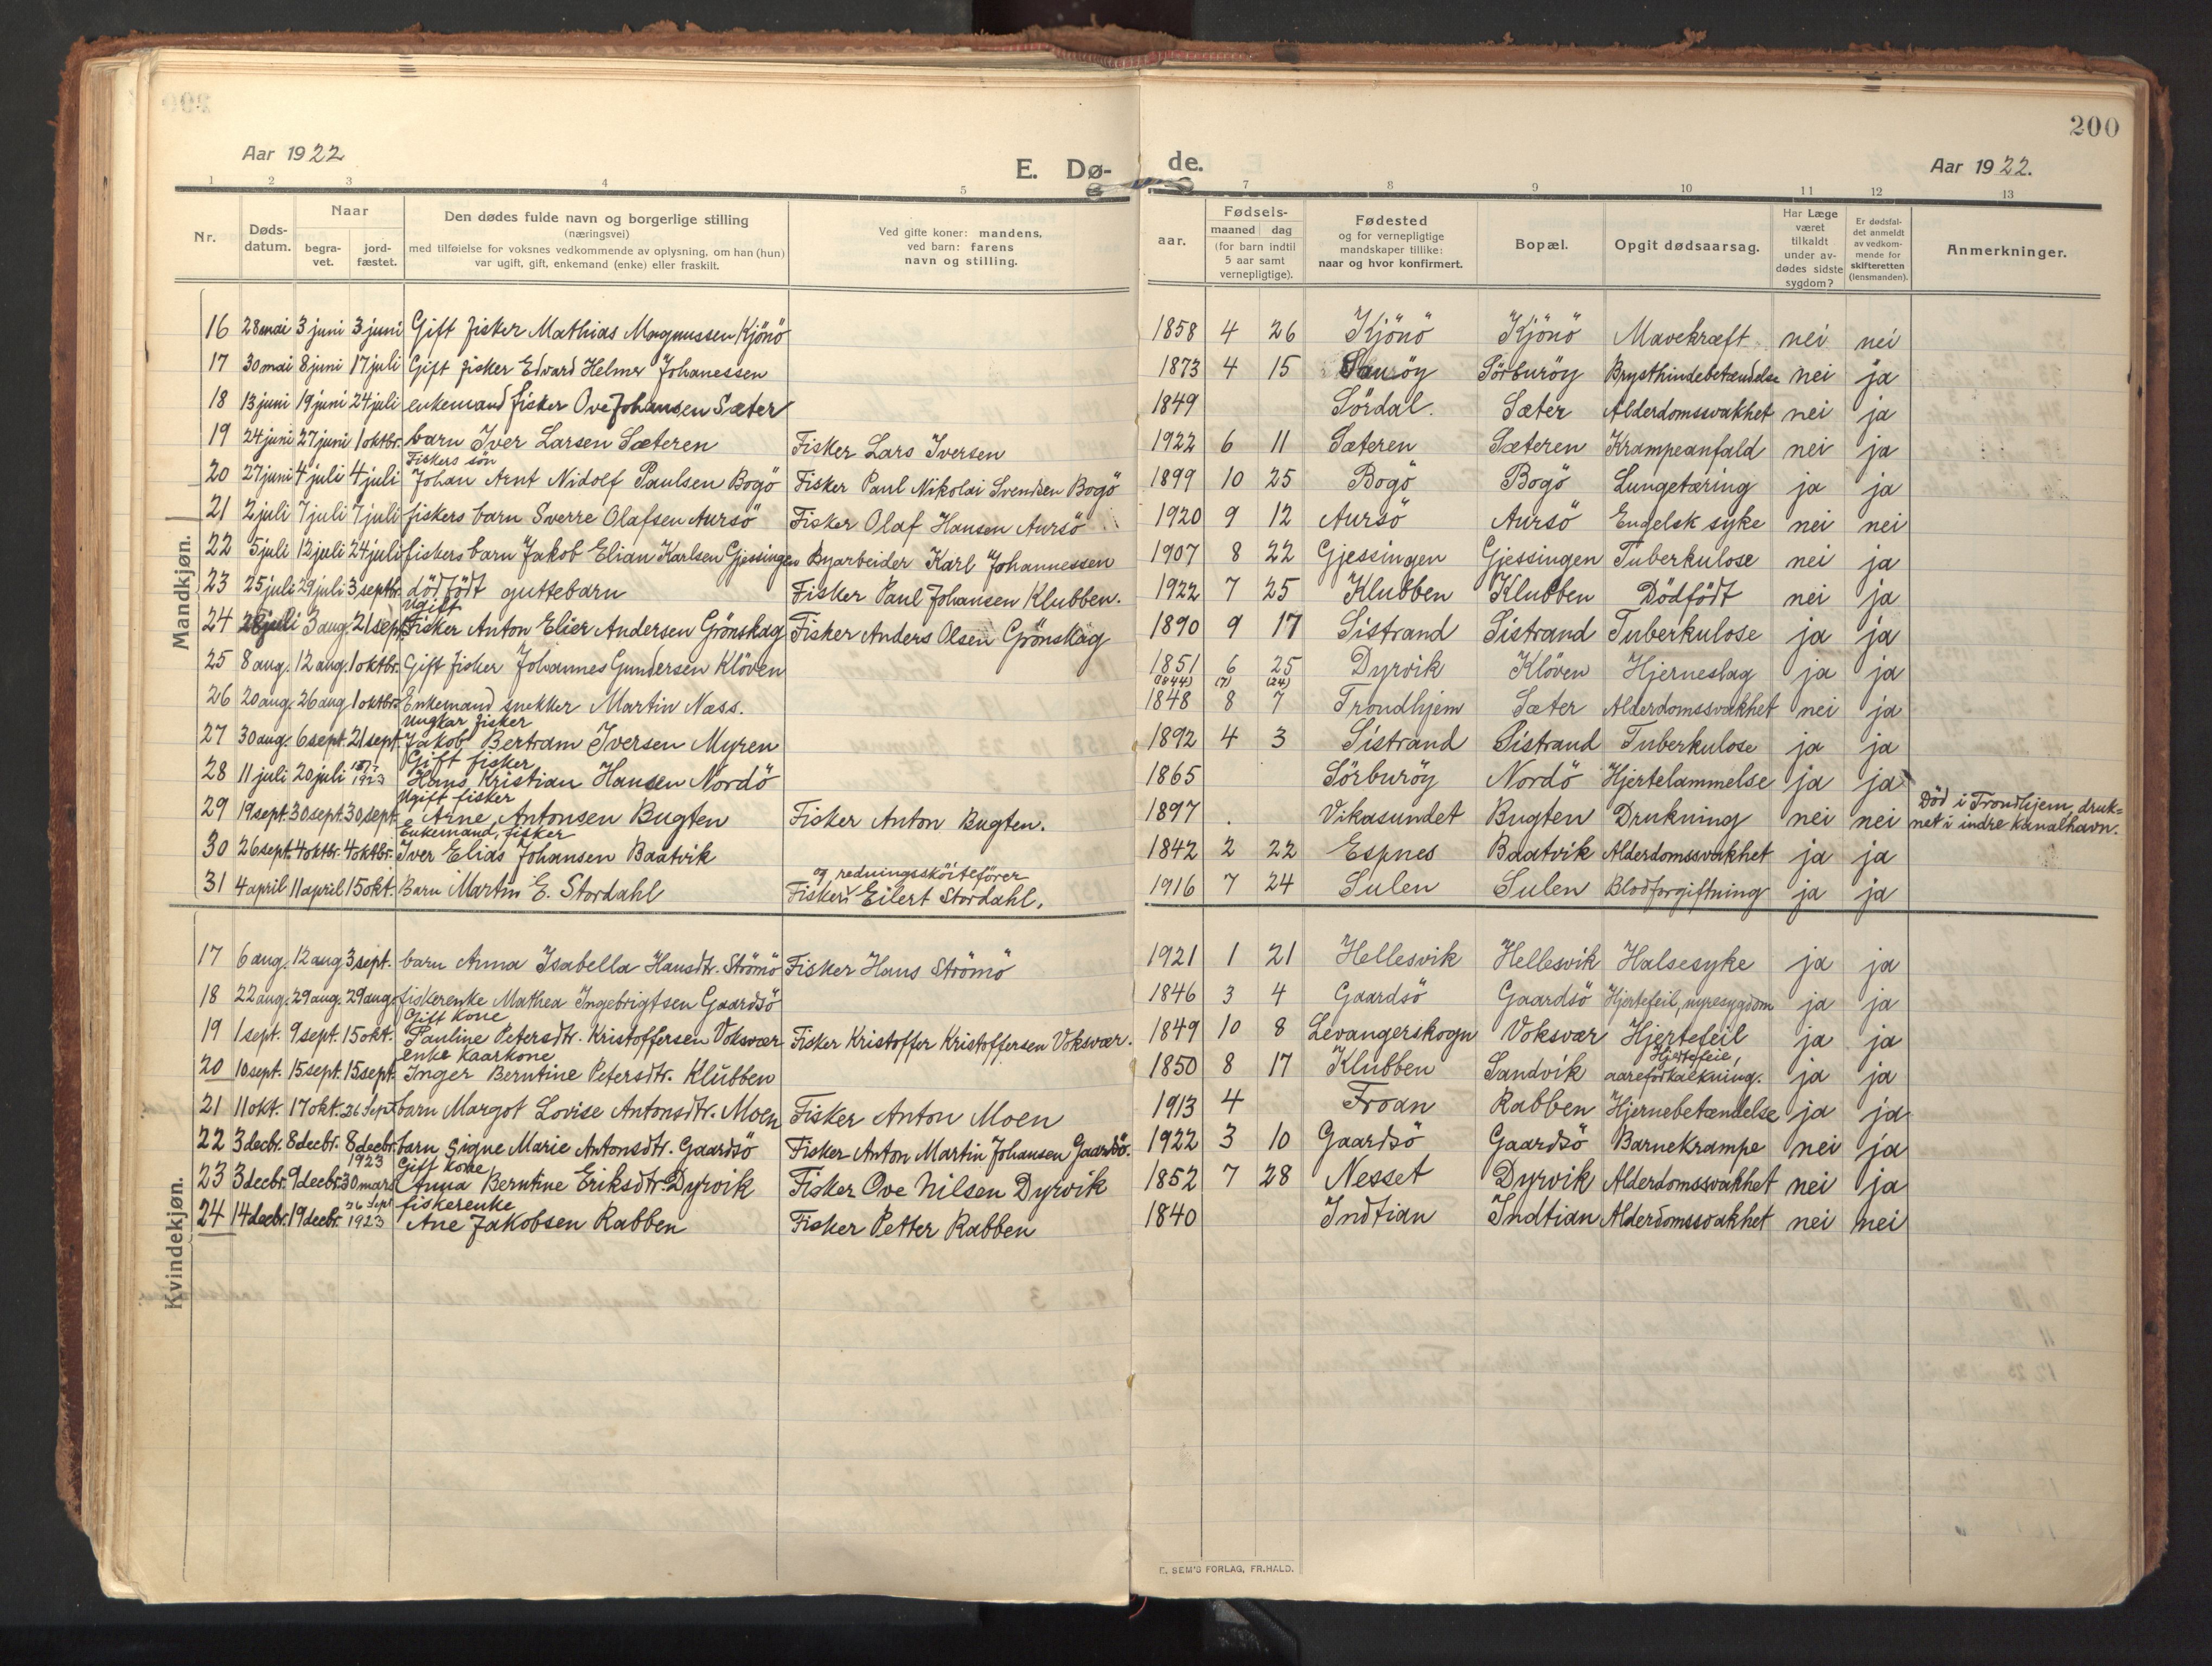 200
Aar 1922
E. Dø-
de.
Aar 1922.
1 2 3 4 5 7 8 9 10 11 12 13
Nr.
Døds-
datum.
Naar
begra-
vet.
jord-
fæstet.
Den dødes fulde navn og borgerlige stilling
(næringsvei)
med tilføielse for voksnes vedkommende av oplysning, om han (hun)
var ugift, gift, enkemand (enke) eller fraskilt.
Ved gifte koner: mandens,
ved barn: farens
navn og stilling.
aar.
Fødsels-
maaned dag
(for barn indtil
5 aar samt
vernepligtige).
Fødested
og for vernepligtige
mandskaper tillike:
naar og hvor konfirmert.
Bopæl.
Opgit dødsaarsag.
Har Læge
været
tilkaldt
under av-
dødes sidste
sygdom?
Er dødsfal-
det anmeldt
av vedkom-
mende for
skifteretten
(lensmanden).
Anmerkninger.
Mandkjøn.
16 28 mai 3 juni 3 juni Gift fisker Mathias Magnussen Kjönö 1858 4 26 Kjönö Kjönö Mavekræft nei nei
17 30 mai 8 juni 17 juli Gift fisker Edvard Helmer Johanessen 1873 4 15 Sörburöy Brysthindebetændelse nei ja
18 13 juni 19 juni 24 juli enkemand fisker Ove Johansen Sæter 1849 Sördal. Sæter Alderdomssvakhet nei ja
19 24 juni 27 juni 1 oktbr. barn Iver Larsen Sæteren Fisker Lars Iversen 1922 6 11 Sæteren Sæteren Krampeanfald nei ja
Fiskers sön
20 27 juni 4 juli 4 juli Johan Arnt Nidolf Paulsen Bogö Fisker Paul Nikolai Svendsen Bogö 1899 10 25 Bogö Bogö Lungetæring ja ja
21 2 juli 7 juli 7 juli fiskers barn Sverre Olafsen Aursö Fisker Olaf Hansen Aursö 1920 9 12 Aursö Aursö Engelsk syke nei nei
22 5 juli 12 juli 24 juli fiskers barn Jakob Elian Karlsen Gjessingen Byarbeider Karl Johannessen 1907 8 22 Gjessingen Gjessingen Tuberkulose nei ja
23 25 juli 29 juli 3 septbr. dödfödt guttebarn Fisker Paul Johansen Klubben. 1922 7 25 Klubben Klubben Dödfödt nei ja
Ugift
24 juli 3 aug. 21 sept. Fisker Anton Elier Andersen Grönskag Fisker Anders Olsen Grönskag 1890 9 17 Sistrand Sistrand Tuberkulose ja ja
25 8 aug. 12 aug. 1 oktbr. Gift fisker Johannes Gundersen Klöven 1851 6 25 Dyrvik Klöven Hjerneslag ja ja
(1844) (7) (24)
26 20 aug. 26 aug 1 oktbr. Enkemand snekker Martin Næss. 1848 8 7 Trondhjem Sæter Alderdomssvakhet nei ja
Ungkar fisker
27 30 aug. 6 sept. 21 sept. Jakob Bertram Iversen Myren 1892 4 3 Sistrand Sistrand Tuberkulose ja ja
Gift fisker
28 11 juli 20 juli 1923 Hans Kristian Hansen Nordö 1865 Sörburöy Nordö Hjertelammelse ja ja
Ugift fisker
29 19 sept. 30 sept. 30 sept. Arne Antonsen Bugten Fisker Anton Bugten. 1897 Vikasundet Bugten Drukning nei nei Död i Trondhjem, druk-
net i indre kanalhavn.
Enkemand, fisker
30 26 sept. 4 oktbr. 4 oktbr. Iver Elias Johansen Baatvik 1842 2 22 Espnes Baatvik Alderdomssvakhet ja ja
og redningssköitefører
31 4 april 11 april 15 okt. Barn Martin E. Stordahl Fisker Eilert Stordahl. 1916 7 24 Sulen Sulen Blodforgiftning ja ja
Kvindekjøn.
17 6 aug. 12 aug 3 sept. barn Anna Isabella Hansdtr. Strömö Fisker Hans Strömö 1921 1 21 Hellesvik Hellesvik Halsesyke ja ja
18 22 aug. 29 aug. 29 aug. fiskerenke Mathea Ingebrigtsen Gaardsö 1846 3 4 Gaardsö Gaardsö Hjertefeil, nyresygdom ja ja
Gift kone
19 1 sept. 9 sept. 15 okt. Pauline Petersdtr. Kristoffersen Voksvær Fisker Kristoffer Kristoffersen Voksvær. 1849 10 8 Levangerskogn Voksvær Hjertefeil ja ja
enke kaarkone
20 10 sept. 15 sept. 15 sept. Inger Berntine Petersdtr. Klubben 1850 8 17 Klubben Sandvik Hjertefeil, aareforkalkning. ja ja
21 11 okt. 17 okt. 26 Sept barn Margot Lovise Antonsdtr. Moen Fisker Anton Moen 1913 4 Froan Rabben Hjernebetændelse ja ja
22 3 decbr. 8 decbr. 8 decbr. barn Signe Marie Antonsdtr. Gaardsö Fisker Anton Martin Johansen Gaardsö. 1922 3 10 Gaardsö Gaardsö Barnekrampe nei ja
1923 Gift kone
23 3 decbr. 9 decbr. 30 mars Anna Berntine Eriksdtr. Dyrvik Fisker Ove Nilsen Dyrvik 1852 7 28 Nesset Dyrvik Alderdomssvakhet nei ja
26 Sept fiskerenke
24 14 decbr. 19 decbr. 1923 Ane Jakobsen Rabben Fisker Petter Rabben 1840 Indtian Indtian Alderdomssvakhet nei nei
E. SEM'S FORLAG, FR.HALD.